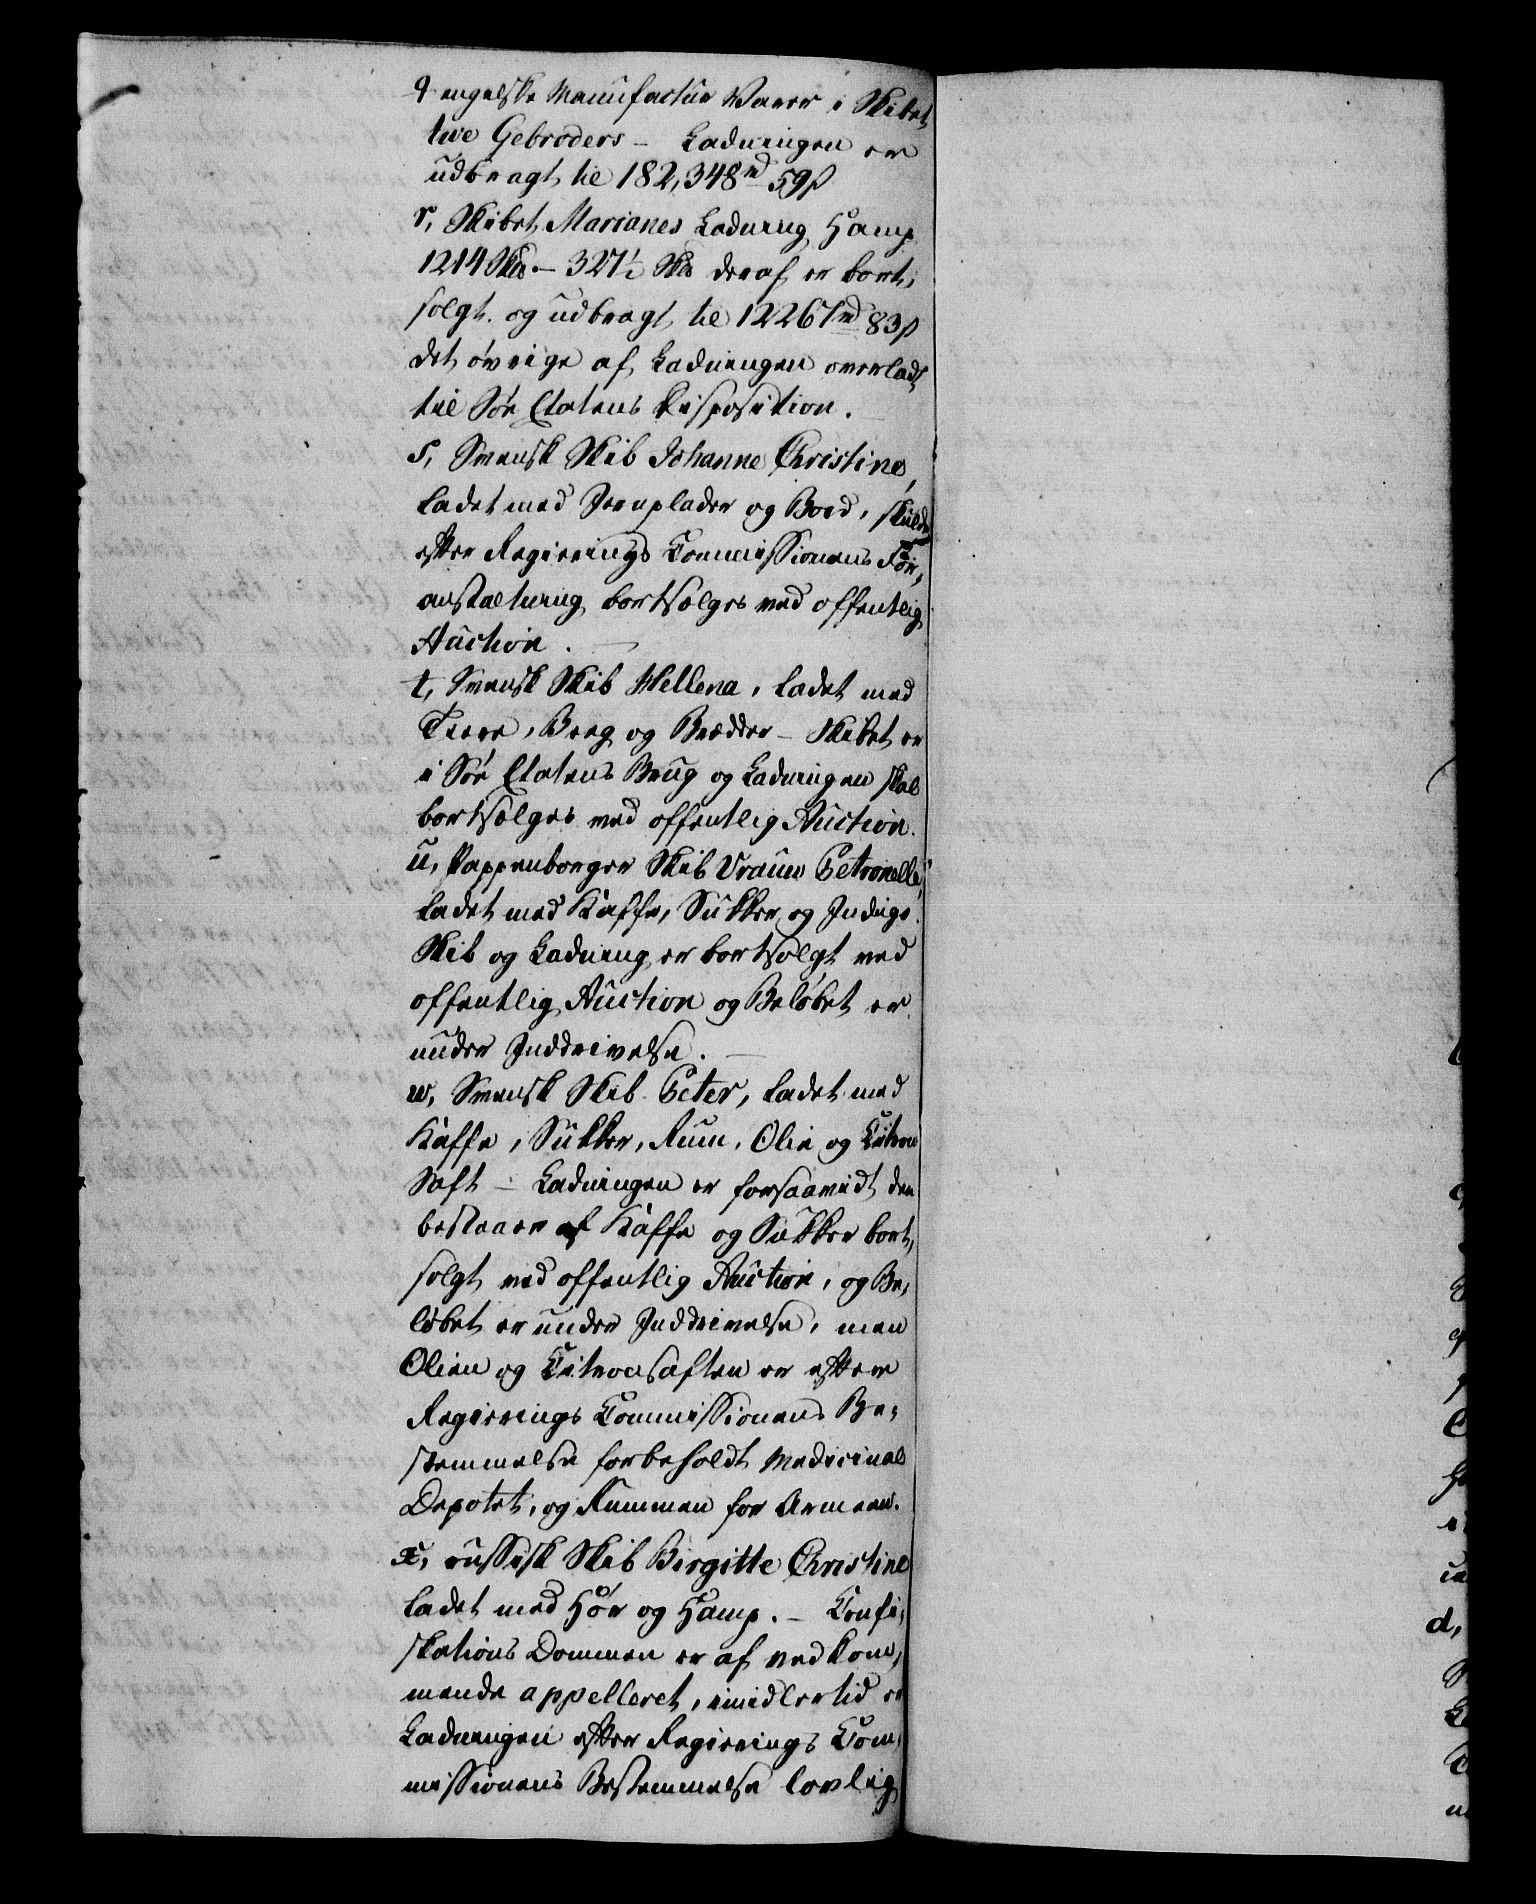 q engelske Manufactur Varer i Skibet
twe Gebroders – Ladningen er
udbragt til 182,348 rd 59 ß
r, Skibet Marianes Ladning Hamp
1214 Sk℔. – 327½ Sk℔ deraf er bort,
solgt. og udbragt til 12267 rd 83 ß
det øvrige af Ladningen overladt
til Söe Etatens Disposition.
s, Svensk Skib Johanne Christine,
ladet med Jernplader og Bord, skulde
efter Regierings Commissionens For,
anstaltning bortsælges ved offentlig
Auction. —
t, Svensk Skib Hellena, ladet med
Tiere, Beeg og Brædder – Skibet er
i Söe Etatens Brug og Ladningen skal
bortsælges ved offentlig Auction.
u, Pappenborger Skib Vrauw Petronelle,
ladet med Kaffe, Sukker og Indigo.
Skib og Ladning er bortsolgt ved
offentlig Auction og Beløbet er
under Inddrivelse. —
w, Svensk Skib Peter, ladet med
Kaffe, Sukker, Rum, Olie og Citron
Saft – Ladningen er forsaavidt den
bestaaer af Kaffe og Sukker bort,
solgt ved offentlig Auction, og Be,
løbet er under Inddrivelse, men
Olien og Citronsaften er efter
Regierings Commissionens Be,
stemmelse forbeholdt Medicinal
Depotet, og Rummen for Armeen.
x, russisk Skib Birgitte Christine
ladet med Hør og Hamp. – Confi,
skations Dommen er af vedkom,
mende appelleret, imidlertid er
Ladningen efter Regierings Com,
missionens Bestemmelse lovlig
d,